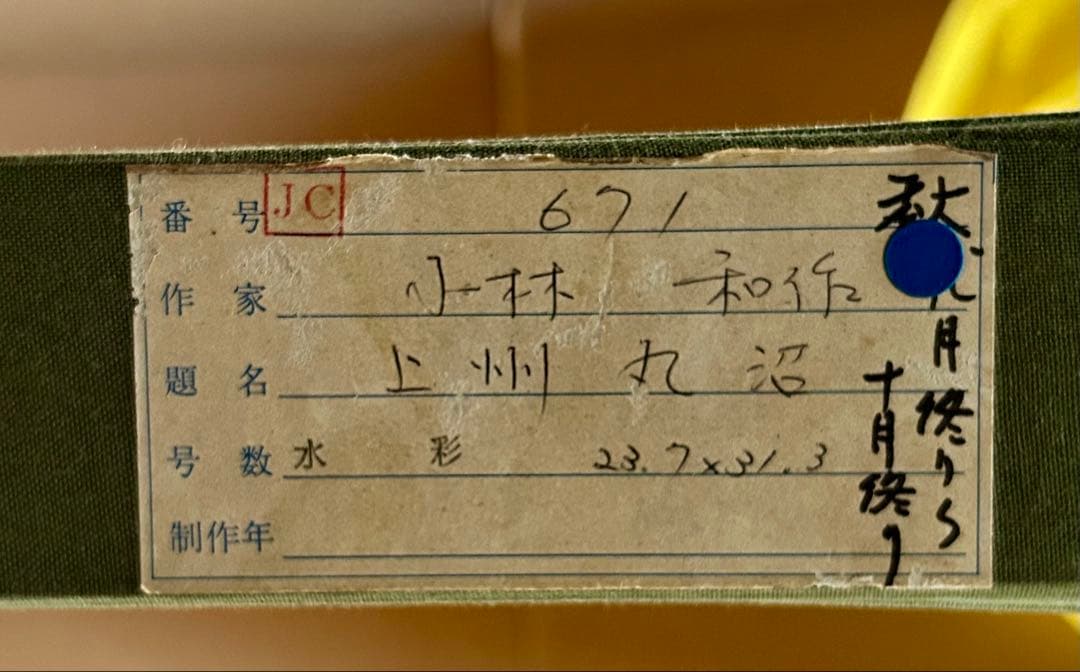 番号 JC 671
作家 小林 和作
題名 上州 丸沼
号数 水彩 23.7×31.3
制作年
秋 九月終りら
十月終り